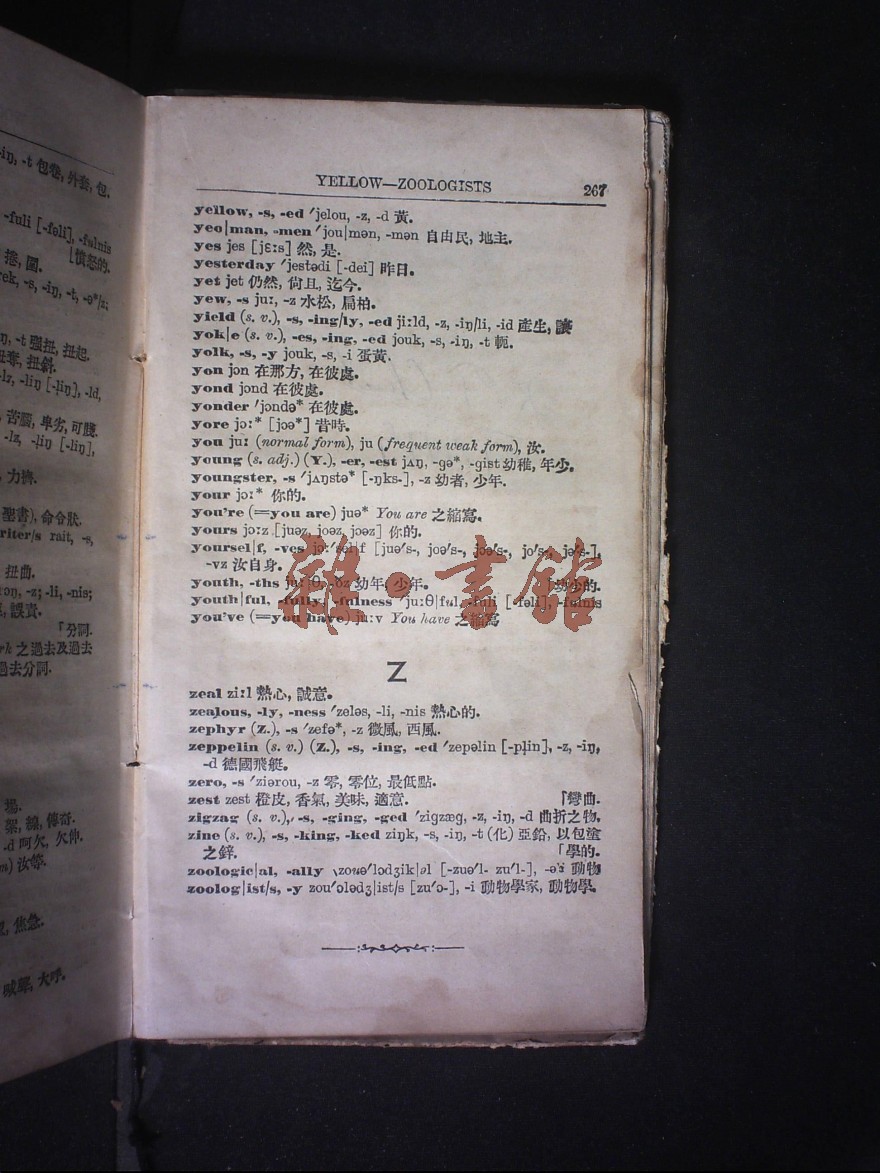 -iŋ, -t 包卷, 外套, 包.
-fuli [-fəli], -fulnis
[憤怒的.
捲, 圍.
-t 强扭, 扭起.
扭奪, 扭斜.
-lz, -liŋ [-l̩iŋ], -ld,
苦腦, 卑劣, 可賤.
-lz, -l̩iŋ [-liŋ],
力擠.
聖書), 命令狀.
riter/s rait, -s,
扭曲.
-z; -li, -nis;
誤責.
「分詞.
rk 之過去及過去
過去分詞.
場.
絮, 線, 傳奇.
-d 呵欠, 欠伸.
汝等.
焦急.
喊聲, 大呼.
YELLOW—ZOOLOGISTS 267
yellow, -s, -ed ′jelou, -z, -d 黃.
yeo|man, -men ′jou|mən, -mən 自由民, 地主.
yes jes [jɛːs] 然, 是.
yesterday ′jestədi [-dei] 昨日.
yet jet 仍然, 尙且, 迄今.
yew, -s juː, -z 水松, 扁柏.
yield (s. v.), -s, -ing/ly, -ed jiːld, -z, -iŋ/li, -id 產生, 讓
yok|e (s. v.), -es, -ing, -ed jouk, -s, -iŋ, -t 軛.
yolk, -s, -y jouk, -s, -i 蛋黃.
yon jon 在那方, 在彼處.
yond jond 在彼處.
yonder ′jɔndə* 在彼處.
yore jɔː* [jɔə*] 昔時.
you juː (normal form), ju (frequent weak form), 汝.
young (s. adj.) (Y.), -er, -est jʌŋ, -gə*, -gist 幼稚, 年少.
youngster, -s ′jʌŋstə* [-ŋks-], -z 幼者, 少年.
your jɔː* 你的.
you're (=you are) juə* You are 之縮寫.
yours jɔːz [juəz, joəz, jɔəz] 你的.
yoursel|f, -ves jɔː′sel|f [juə′s-, joə′s-, jɔə′s-, jo′s-, jə′s-],
-vz 汝自身.
youth, -ths juː|θ, -ðz 幼年, 少年. 「幼少的.
youth|ful, -fully, -fulness ′juːθ|ful, -fuli [-fəli], -fulnis
you've (=you have) juːv You have 之縮寫
雜·書館
Z
zeal ziːl 熱心, 誠意.
zealous, -ly, -ness ′zeləs, -li, -nis 熱心的.
zephyr (Z.), -s ′zefə*, -z 微風, 西風.
zeppelin (s. v.) (Z.), -s, -ing, -ed ′zepəlin [-pl̩in], -z, -iŋ,
-d 德國飛艇.
zero, -s ′ziərou, -z 零, 零位, 最低點.
zest zest 橙皮, 香氣, 美味, 適意. 「彎曲.
zigzag (s. v.), -s, -ging, -ged ′zigzæg, -z, -iŋ, -d 曲折之物,
zinc (s. v.), -s, -king, -ked ziŋk, -s, -iŋ, -t (化) 亞鉛, 以包塗
之鋅. 「學的.
zoologic|al, -ally ˎzouə′lɔdʒik|əl [-zuə′l- zu′l-], -ə's 動物
zoolog|ist/s, -y zou′ɔlədʒ|ist/s [zu′ɔ-], -i 動物學家, 動物學.